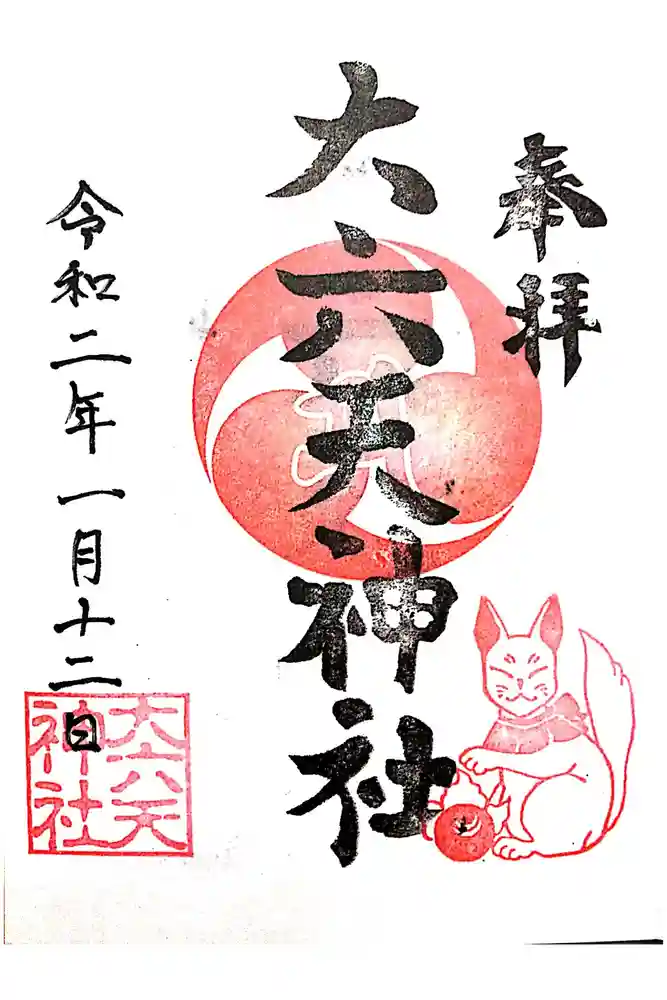 奉拝
大六天神社
令和二年一月十二日
大六天
神社